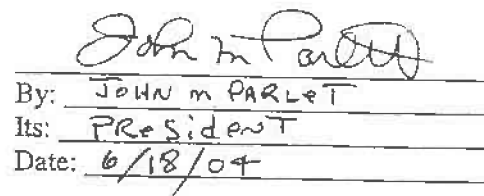 John m Parlett
By: JOHN m PARLeT
Its: PReSideNT
Date: 6/18/04